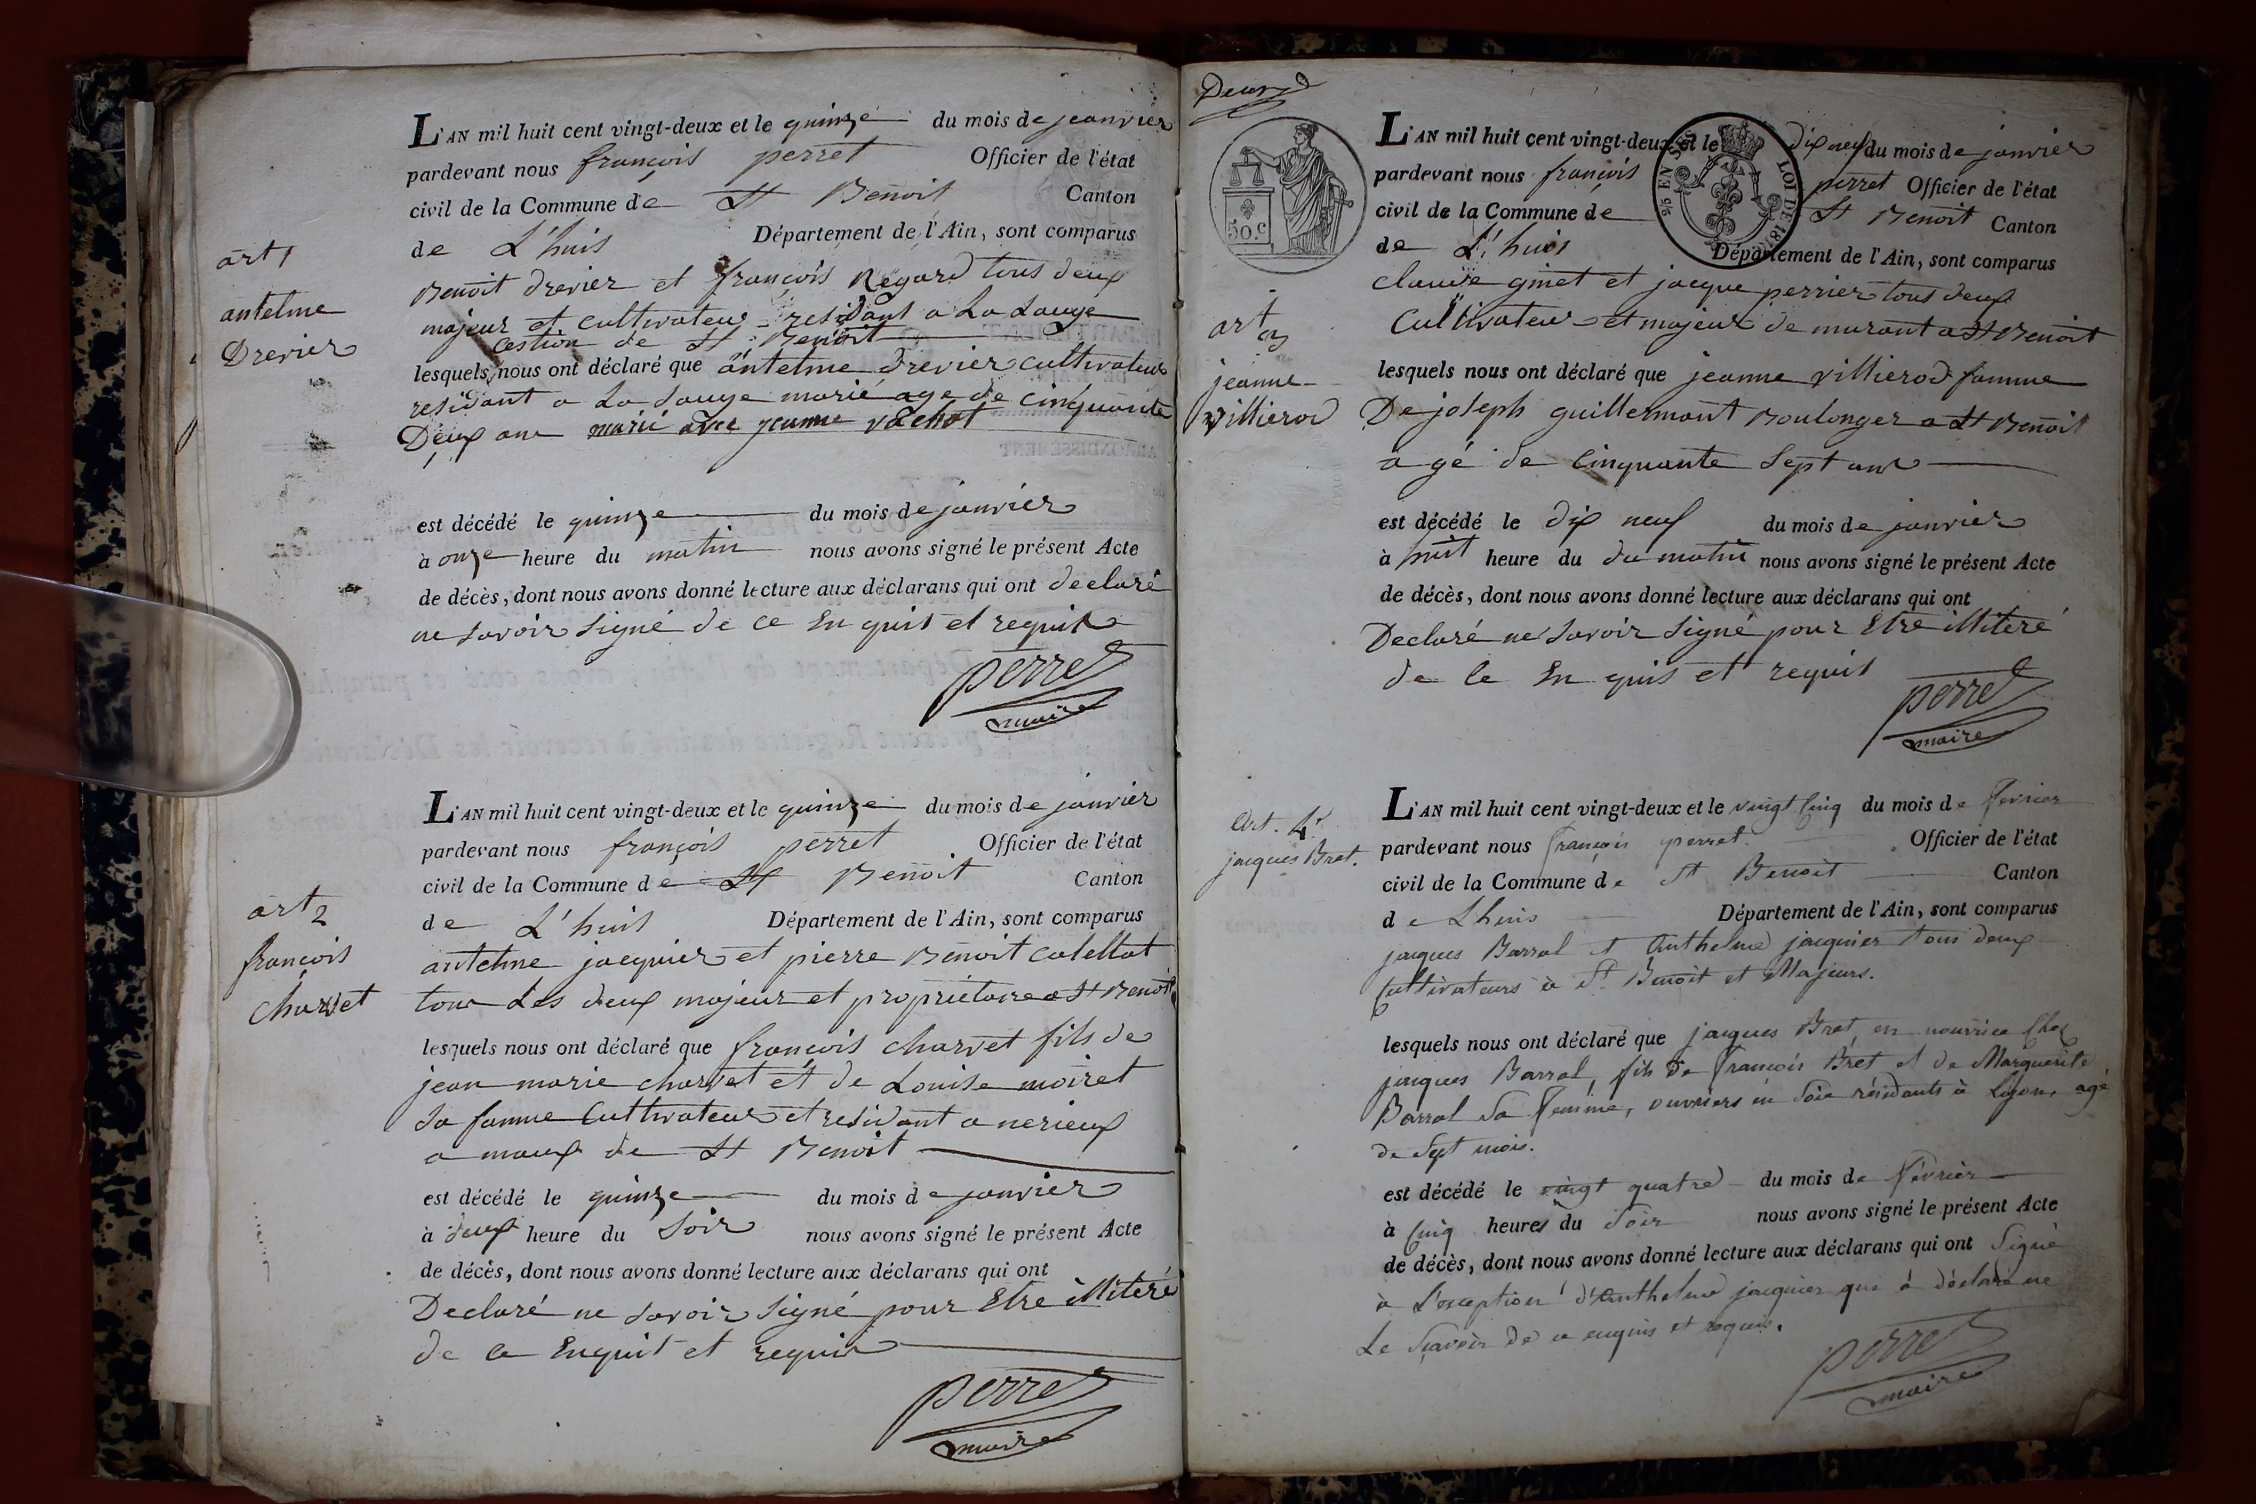 L'AN mil huit cent vingt-deux et le quinze du mois de jeanvier
pardevant nous françois perret Officier de l'état
civil de la Commune de St Benoit Canton
de L'huis Département de l'Ain, sont comparus
Benoit drevier et françois Regard tous deux
majeur et cultivateur residant a La Sauge
Cestion de St Benoit
lesquels nous ont déclaré que antelme drevier cultivateur
residant a La Sauge marié age de cinquante
Deux ans marié avec jeanne vachot
est décédé le quinze du mois de janvier
à onze heure du matin nous avons signé le présent Acte
de décès, dont nous avons donné lecture aux déclarans qui ont declaré
ne savoir signé de ce En quis et requis
perret
maire
art 1
antelme
Drevier
L'AN mil huit cent vingt-deux et le quinze du mois de janvier
pardevant nous françois perret Officier de l'état
civil de la Commune de St Benoit Canton
de L'huis Département de l'Ain, sont comparus
antelme jacquier et pierre Benoit Colellat
tous Les deux majeur et proprietaire a St Benoit
lesquels nous ont déclaré que françois charvet fils de
jean marie charvet et de Louise moiret
sa famme Cultivateur et residant a nerieux
a maux de St Benoit
est décédé le quinze du mois de janvier
à deux heure du Soir nous avons signé le présent Acte
de décès, dont nous avons donné lecture aux déclarans qui ont
Declaré ne savoir signé pour Etre illiteré
de ce Enquit et requis
perret
maire
art 2
françois
charvet
Deux
50.C
25 EN SUS
LOI DE 1816
L'AN mil huit cent vingt-deux et le dix neuf du mois de janvier
pardevant nous françois perret Officier de l'état
civil de la Commune de St Benoit Canton
de L'huis Département de l'Ain, sont comparus
claude ginet et jacque perrier tous deux
Cultivateur et majeur de murant a St Benoit
lesquels nous ont déclaré que jeanne villierod famme
De joseph guillermont Boulonger a St Benoit
a gé de Cinquante Sept ans
est décédé le dix neuf du mois de janvier
à huit heure du du matin nous avons signé le présent Acte
de décès, dont nous avons donné lecture aux déclarans qui ont
Declaré ne savoir signé pour Etre illiteré
de ce En quis et requis
perret
maire
art 3
jeanne
villierod
L'AN mil huit cent vingt-deux et le vingt Cinq du mois de fevrier
pardevant nous françois perret Officier de l'état
civil de la Commune de St Benoit Canton
de Lhuis Département de l'Ain, sont comparus
jacques Barral et Anthelme jacquier tous deux
Cultivateurs à St Benoit et Majeurs.
lesquels nous ont déclaré que jacques Bret, en nourrice chez
jacques Barral, fils de françois Bret et de Marguerite
Barral sa femme, ouvriers en Soie résidants à Lyon, agé
de Sept mois.
est décédé le vingt quatre du mois de février
à Cinq heures du soir nous avons signé le présent Acte
de décès, dont nous avons donné lecture aux déclarans qui ont Signé
à L'exception d'Anthelme jacquier qui a déclaré ne
Le Sçavoir de ce enquis et requis.
perret
maire
Art. 4e
jacques Bret.